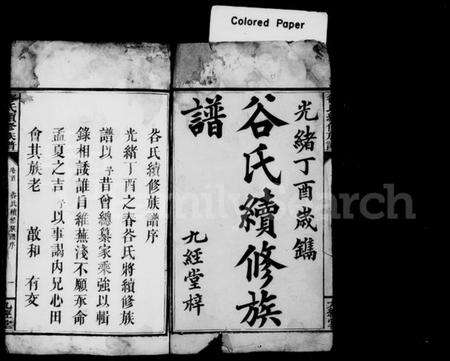 Colored Paper
光緒丁酉歲鐫
谷氏續修族
譜
九經堂梓
谷氏續修族譜序
光緒丁酉之春谷氏將續修族
譜以予昔曾總纂家乘強以輯
錄相諉誰自維蕪淺不願奉命
孟夏之吉予以事謁内兄心田
會其族老 啟和 有交
FamilySearch